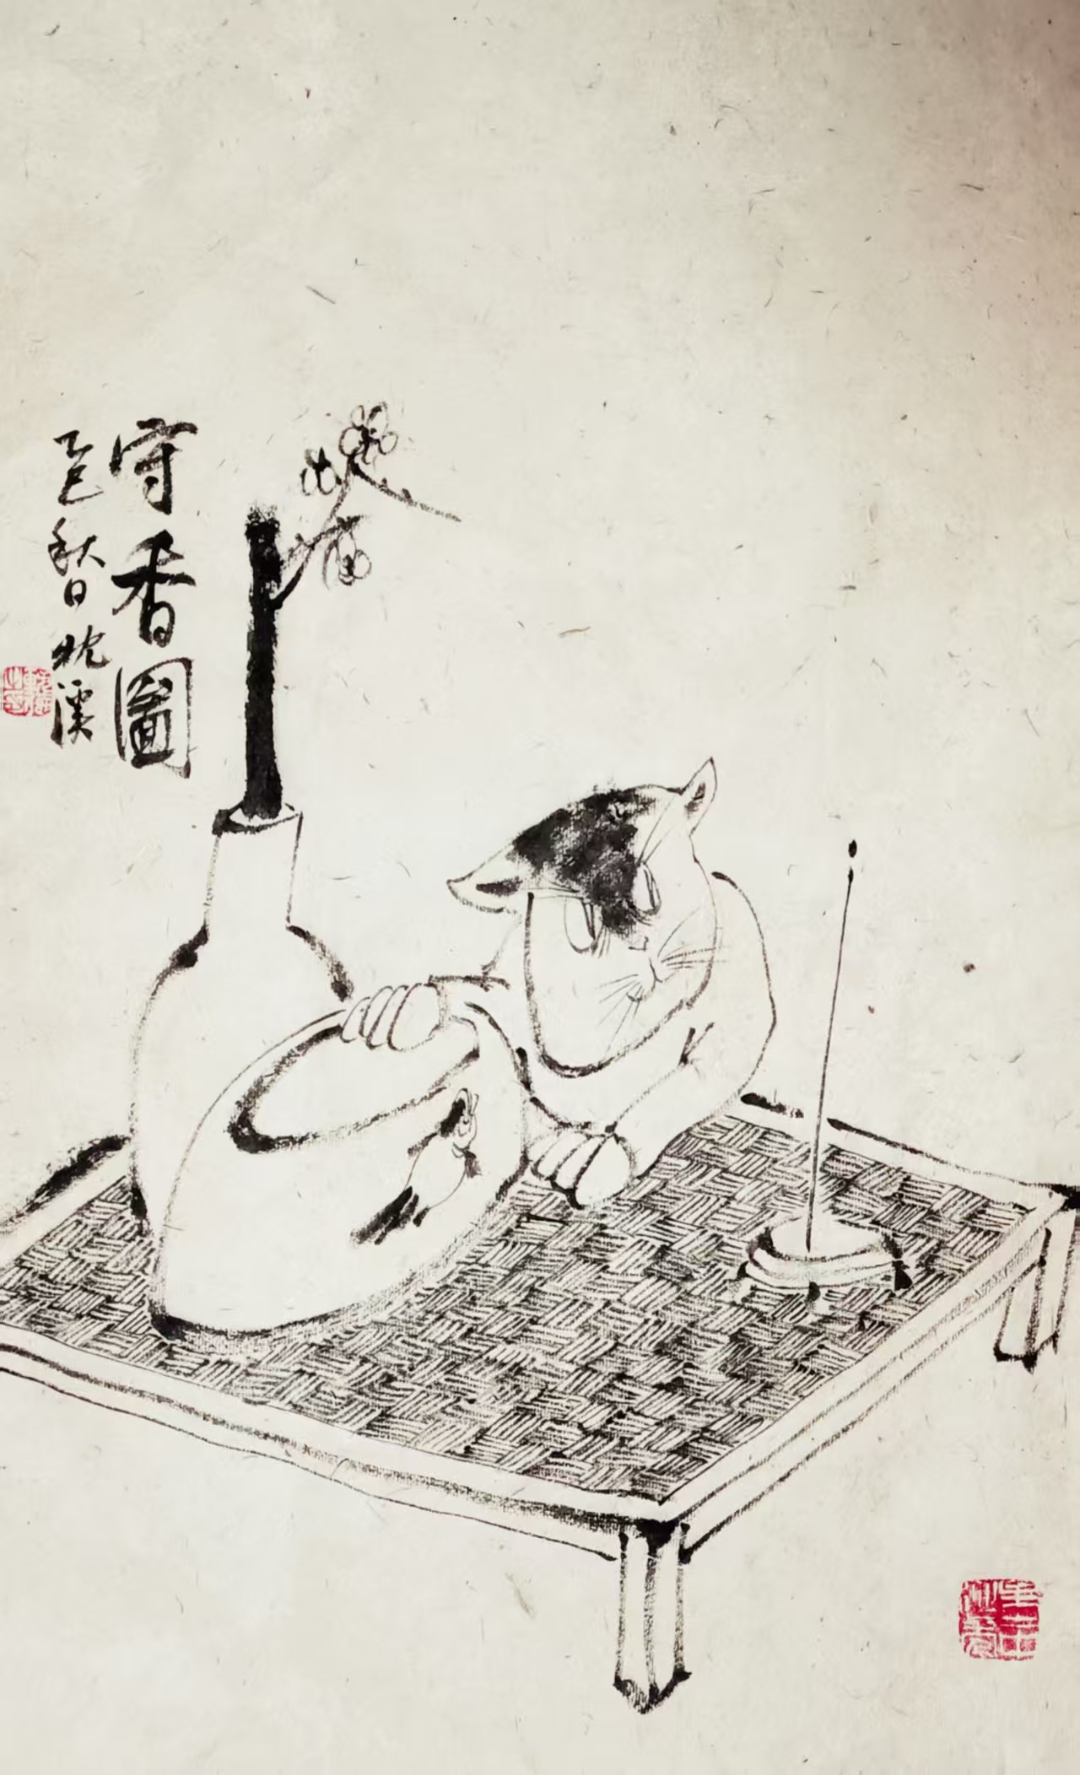 守香圖
乙巳秋日枕溪